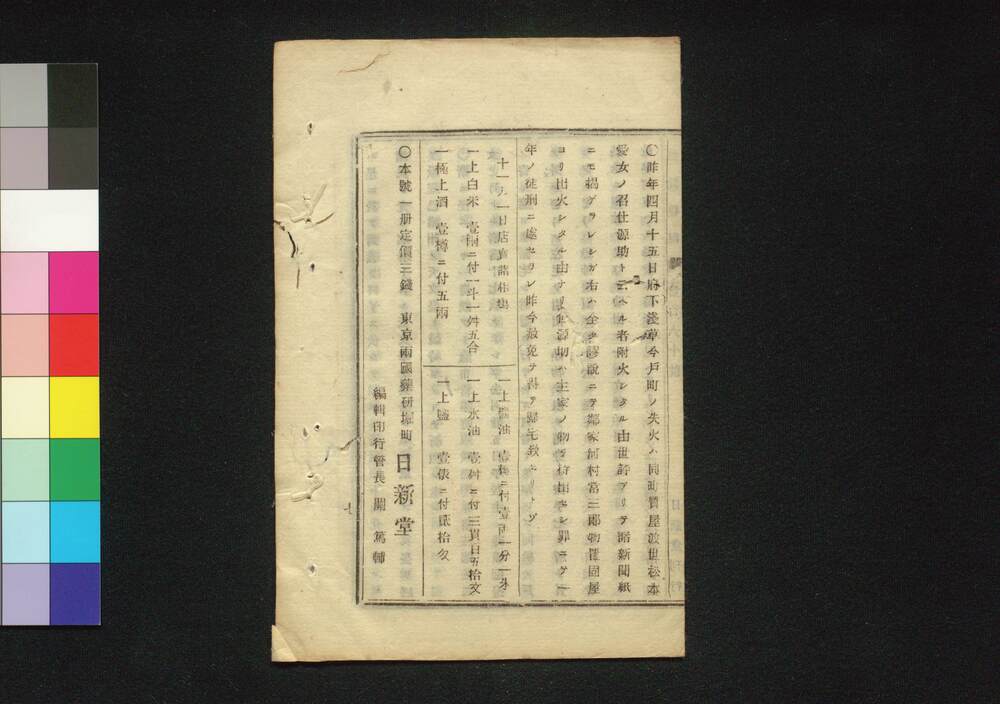 〇昨年四月十五日府下淺草今戸町ノ失火ハ同町質屋渡世松本
愛女ノ召仕源助ト云ヘル者附火シタル由世評アリテ諸新聞紙
ニモ揭ゲラレシガ右ハ全ク謬説ニテ鄰家河村當三郎物置固屋
ヨリ出火シタル由ナリ源助ハ主家ノ物ヲ持出セシ罪ニテ一
年ノ徒刑ニ處セラレ昨今赦免ヲ得テ歸宅致セリトゾ
十一月一日店賣諸相塲
一上白米 壹兩ニ付一斗一舛五合
一極上酒 壹樽ニ付五兩
一上醬油 壹樽ニ付壹兩一分一朱
一上水油 壹舛ニ付三貫百五拾文
一上鹽 壹俵ニ付貳拾匁
〇本號一册定價三錢 東京兩國藥研堀町 日新堂
編輯印行管長 關 篤輔
七